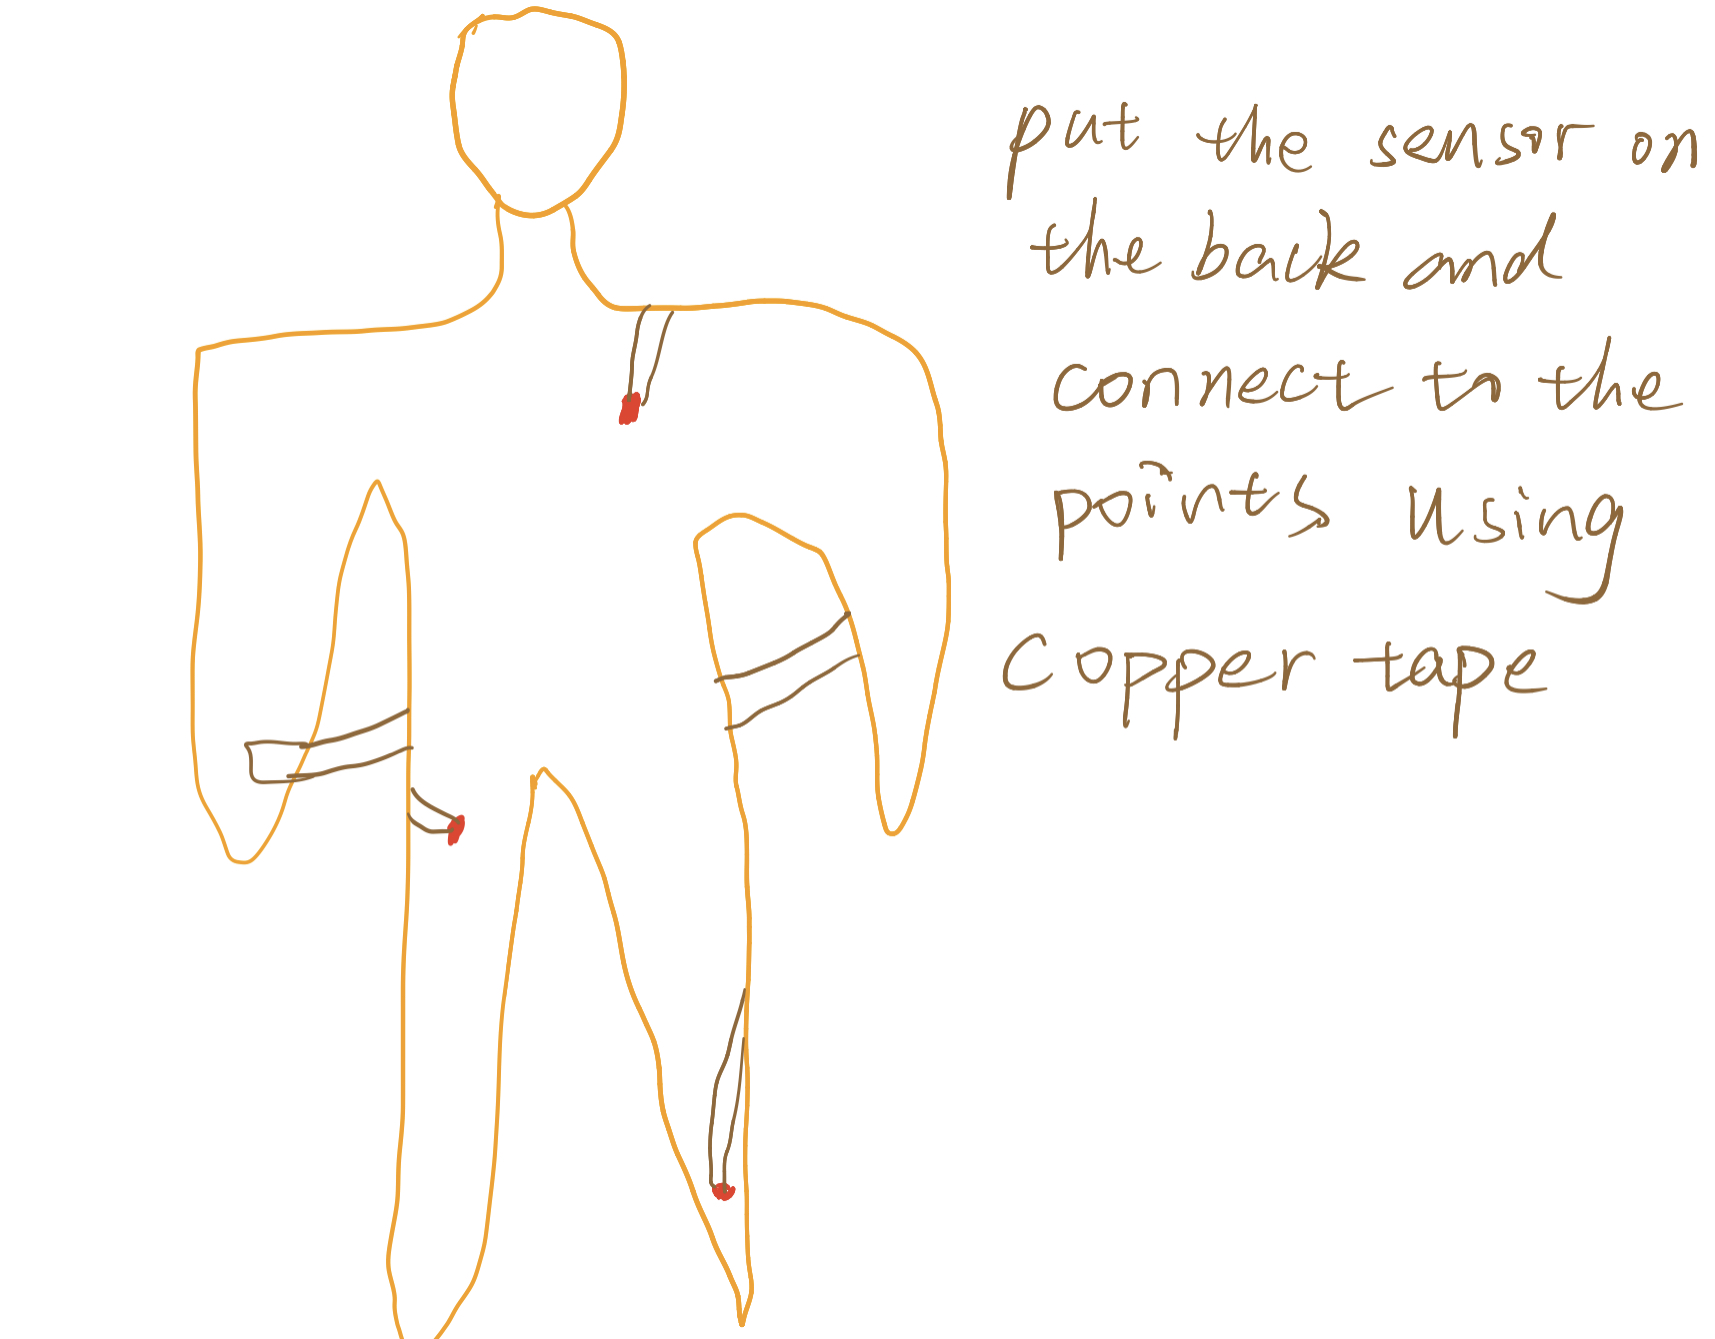 put the sensor on
the back and
connect to the
points using
Copper tape